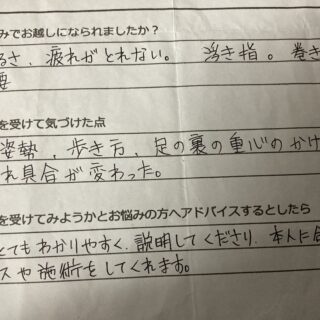 みでお越しになられましたか？
るさ、疲れがとれない。 浮き指。巻き
要
を受けて気づけた点
姿勢、歩き方、足の裏の重心のかけ
れ具合が変わった。
を受けてみようかとお悩みの方へアドバイスするとしたら
とてもわかりやすく、説明してくださり、本人に合
スや施術をしてくれます。